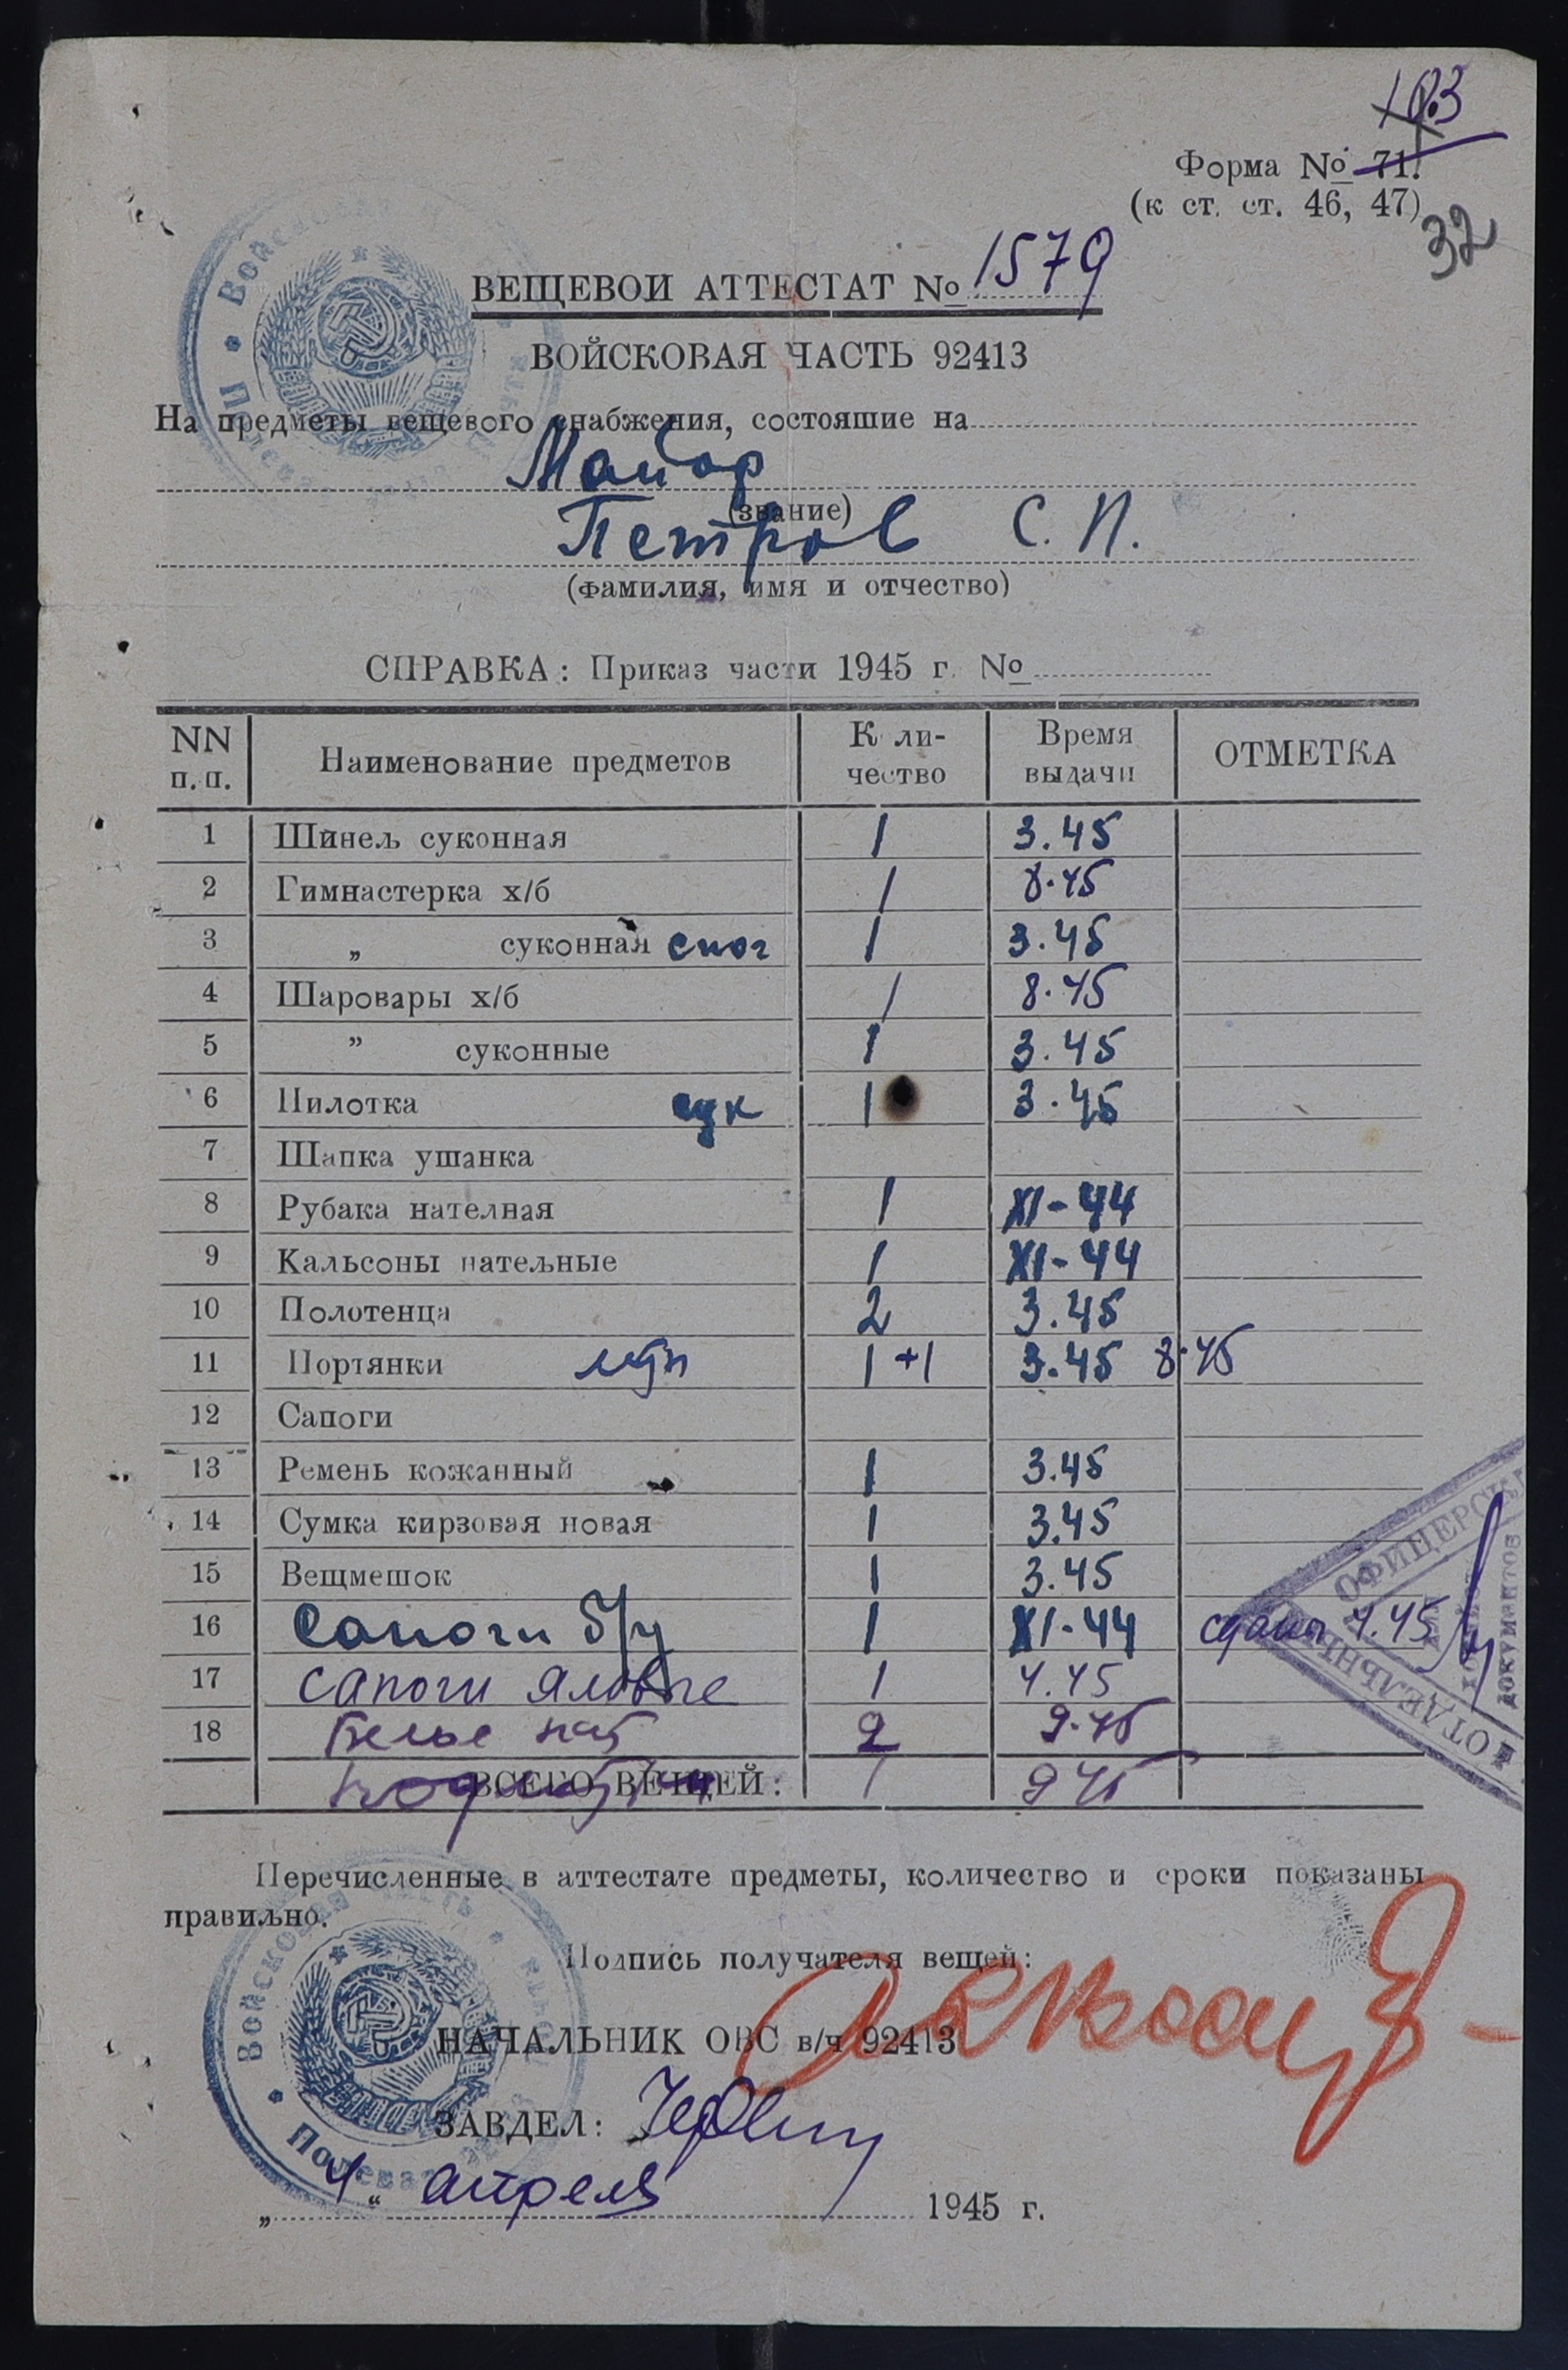 103
Форма № 71.
(к ст. ст. 46, 47)
32
ВЕЩЕВОЙ АТТЕСТАТ № 1579
ВОЙСКОВАЯ ЧАСТЬ 92413
На предметы вещевого снабжения, состояшие на
Майор
(звание)
Петров С. П.
(фамилия, имя и отчество)
СПРАВКА: Приказ части 1945 г. №
NN п. п. Наименование предметов К ли-чество Время выдачи ОТМЕТКА
1 Шинељ суконная 1 3.45
2 Гимнастерка х/б 1 8.45
3 „ суконная 1 3.45
4 Шаровары х/б 1 8.45
5 ” суконные 1 3.45
6 Пилотка сук 1 3.45
7 Шапка ушанка
8 Рубака нателная 1 XI-44
9 Кальсоны натељные 1 XI-44
10 Полотенца 2 3.45
11 Портянки летн 1+1 3.45 8.45
12 Сапоги
13 Ремень кожанный 1 3.45
14 Сумка кирзовая новая 1 3.45
15 Вещмешок 1 3.45
16 Сапоги б/у 1 XI-44 сданы 4.45
17 сапоги яловые 1 4.45
18 Белье нат 2 9.45
ВСЕГО ВЕЩЕЙ: 1 9 45
ОФИЦЕРСК
ДОКУМЕНТОВ
ОТДЕЛЬНЫ
Перечисленные в аттестате предметы, количество и сроки показаны
правиљно.
Подпись получателя вещей:
НАЧАЛЬНИК ОВС в/ч 92413
ЗАВДЕЛ:
„ 4 “ апреля 1945 г.
Войсковая часть
Полевая